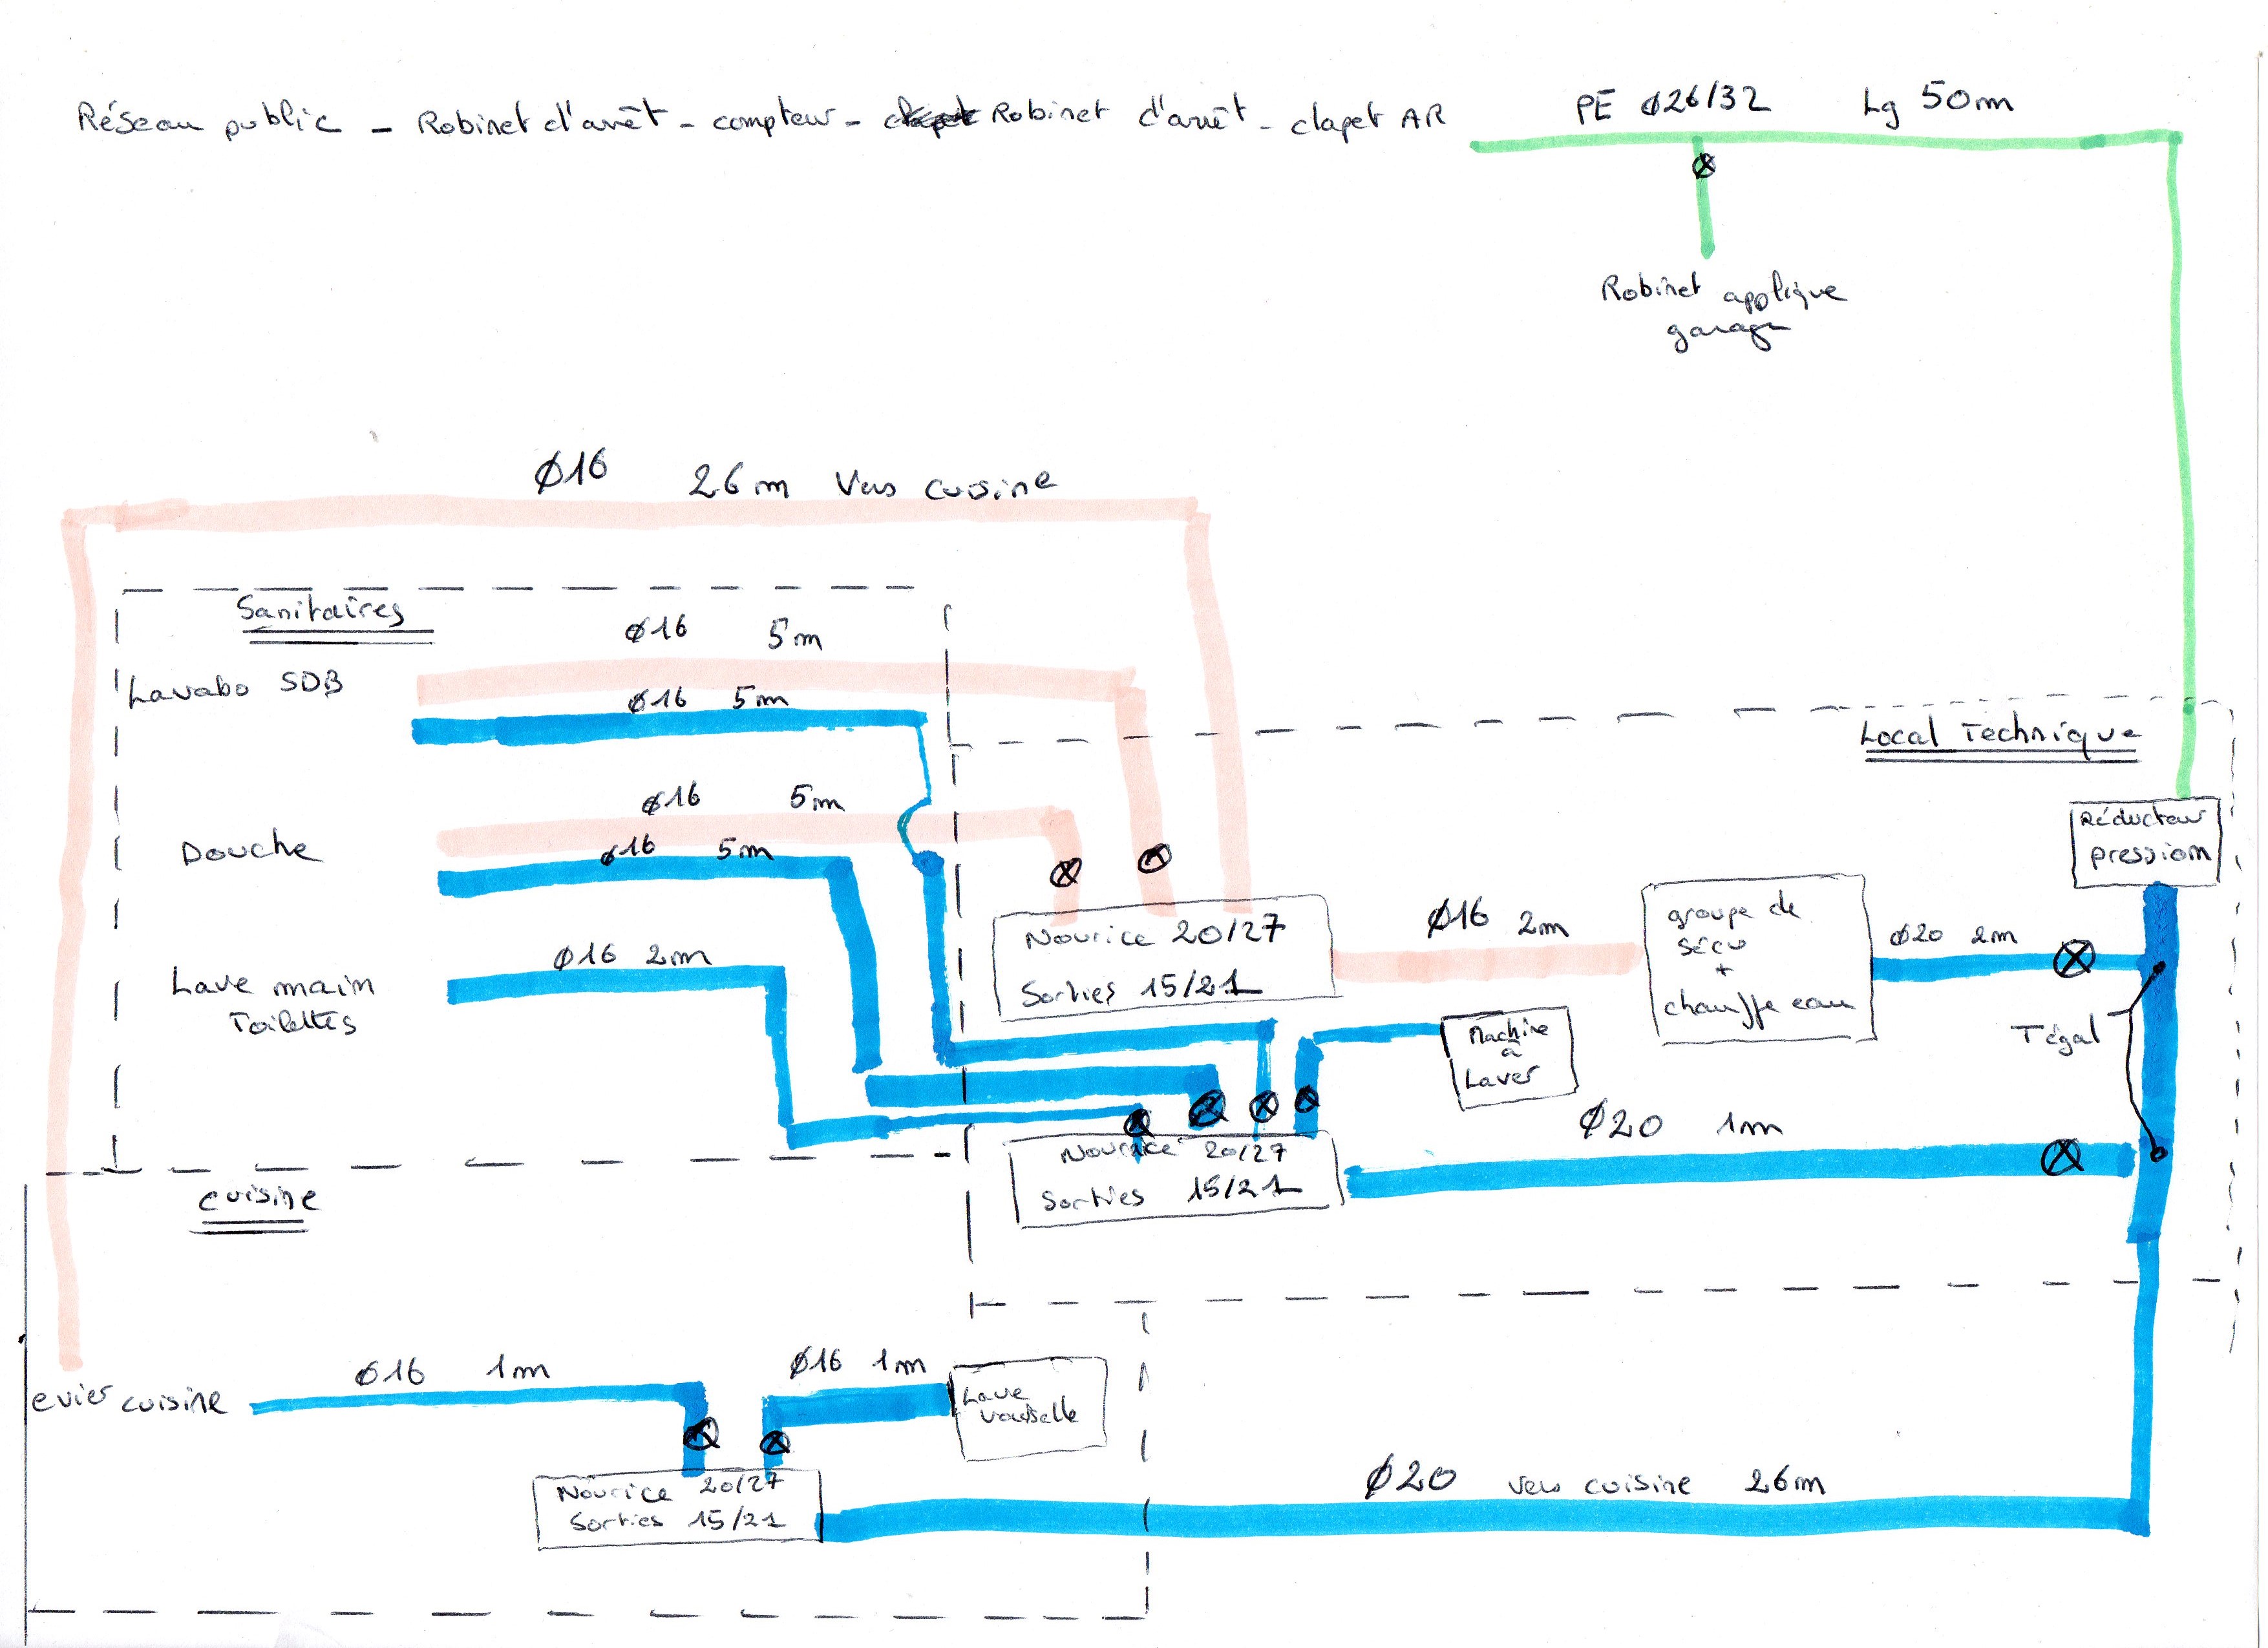 Réseau public - Robinet d'arrêt - compteur - Robinet d'arrêt - clapet AR
PE ø26/32 Lg 50m
Robinet applique
garage
ø16 26m Vers cuisine
Sanitaires
ø16 5m
Lavabo SDB
ø16 5m
Local Technique
ø16 5m
Douche
ø16 5m
Réducteur
pression
ø16 2m
Lave main
Toilettes
Nourice 20/27
Sorties 15/21
ø16 2m
groupe de
sécu
+
chauffe eau
ø20 2m
Tégal
Machine
à
Laver
ø20 1m
Nourice 20/27
Sorties 15/21
cuisine
evier cuisine
ø16 1m
ø16 1m
Lave
vaisselle
Nourice 20/27
Sorties 15/21
ø20 vers cuisine 26m